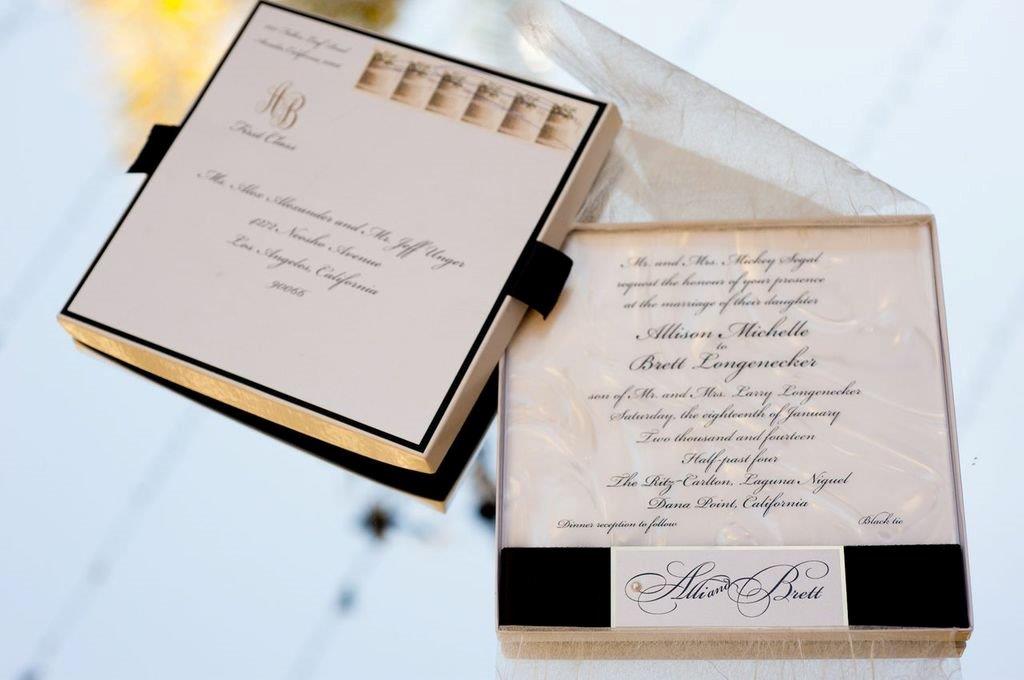 First Class
Mr. Alex Alexander and Mr. Jeff Unger
4272 Neosho Avenue
Los Angeles, California
90066
Mr. and Mrs. Mickey Segal
request the honour of your presence
at the marriage of their daughter
Allison Michelle
to
Brett Longenecker
son of Mr. and Mrs. Larry Longenecker
Saturday, the eighteenth of January
Two thousand and fourteen
Half-past four
The Ritz-Carlton, Laguna Niguel
Dana Point, California
Dinner reception to follow
Black tie
Alli and Brett